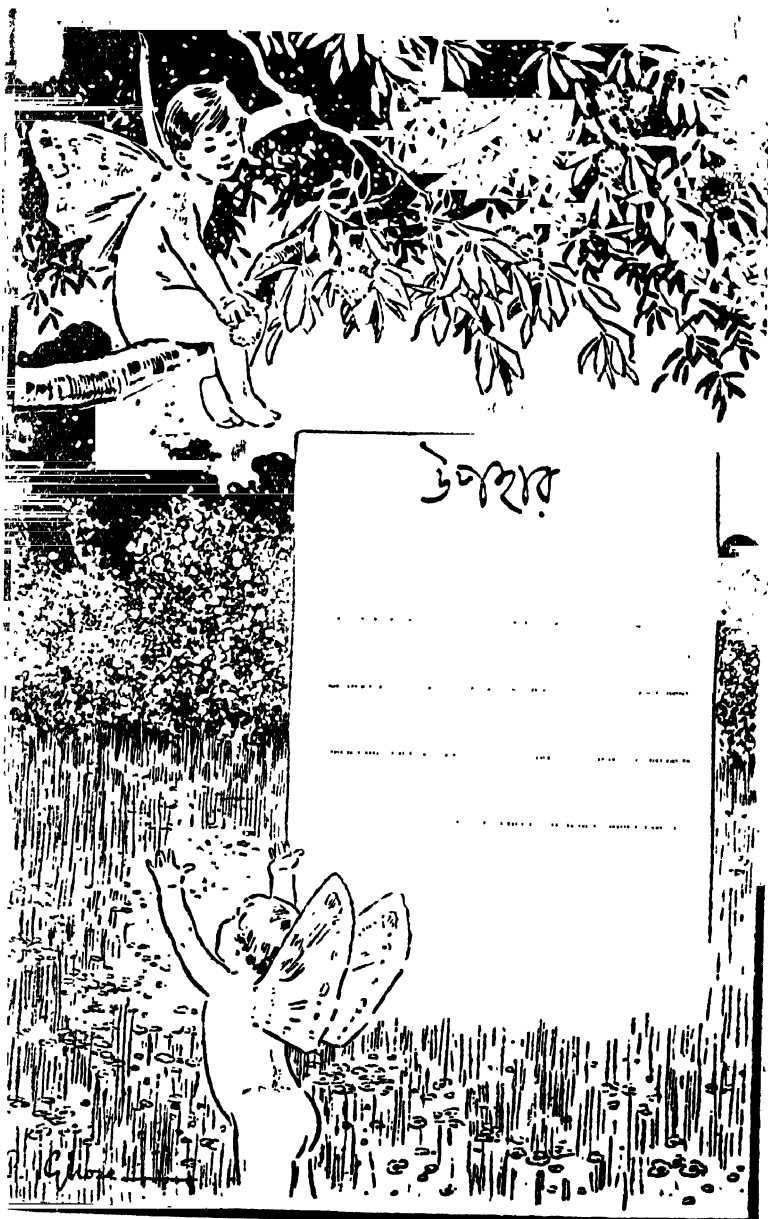 উপহার